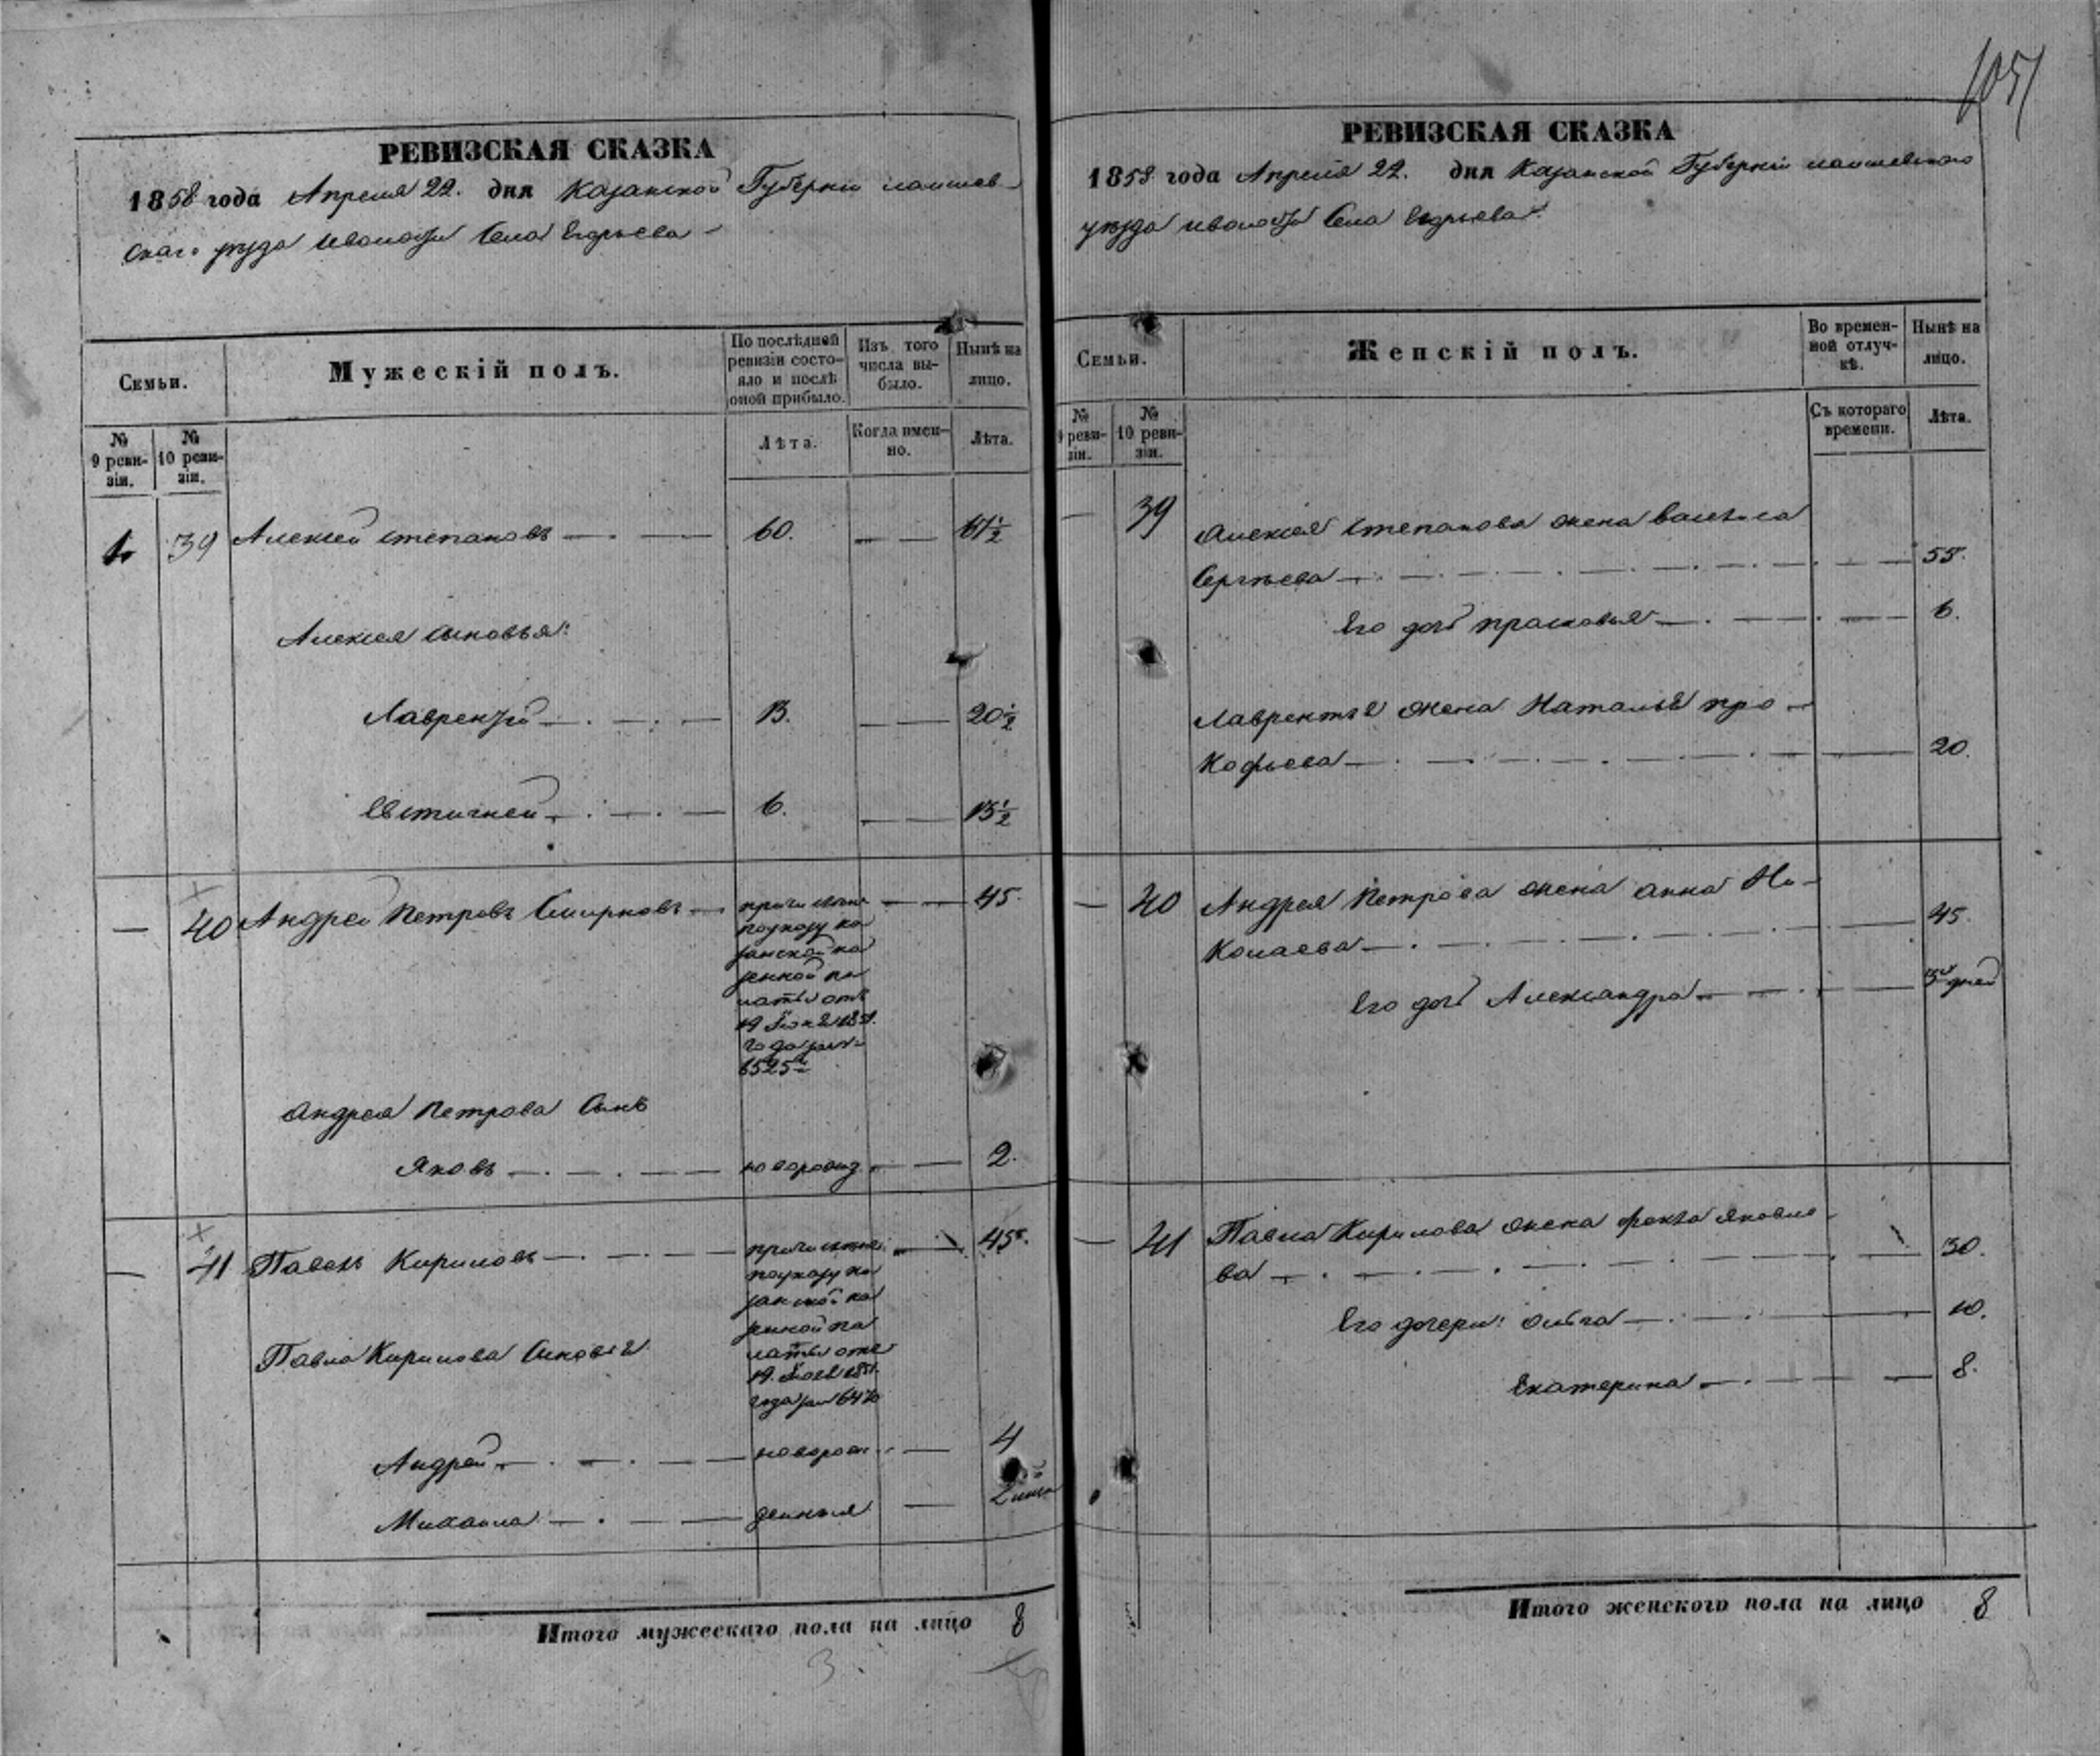 1051
РЕВИЗСКАЯ СКАЗКА
1858 года Апреля 22. дня Казанской Губерніи лаишев-
скаго уезда Села Егорьева
Семьи.
Мужескій полъ.
По послѣдней ревизіи состояло и послѣ оной прибыло.
Изъ того числа выбыло.
Нынѣ на лицо.
№ 9 ревизіи.
№ 10 ревизіи.
Лѣта.
Когда именно.
Лѣта.
39 Алексей степановъ 60. 61½
Алексея сыновья:
Лаврентій 13. 20½
Евстигней 6. 15½
40 Андрей Петровъ Смирновъ причислен 45.
по указу ка
занской ка
зенной па
латы отъ
19 1851.
года за №
6525
Андрея Петрова Сынъ
Яковъ новорожд 2.
41 Павелъ Кириловъ причислен 45.
по указу ка
занской ка
зенной па
латы отъ
Павла Кирилова Сыновья
19. 1851.
года за № 6470
Андрей новорож 4
Михаила денныя 2
Итого мужескаго пола на лицо 8
3
РЕВИЗСКАЯ СКАЗКА
1858 года Апреля 22. дня Казанской Губерніи лаишевскаго
уезда Села Егорьева
Семьи.
Женскій полъ.
Во временной отлучкѣ.
Нынѣ на лицо.
№ 9 ревизіи.
№ 10 ревизіи.
Съ котораго времени.
Лѣта.
39 Алексея Степанова жена Василиса
Сергѣева 55.
Его дочь прасковья 6.
Лаврентья жена Наталья про-
кофьева 20.
40 Андрея Петрова жена анна Ни-
колаева 45.
Его дочь Александра дней
41 Павла Кирилова жена фекла яковле-
ва 30.
Его дочери: ольга 10.
Екатерина 8.
Итого женскаго пола на лицо 8